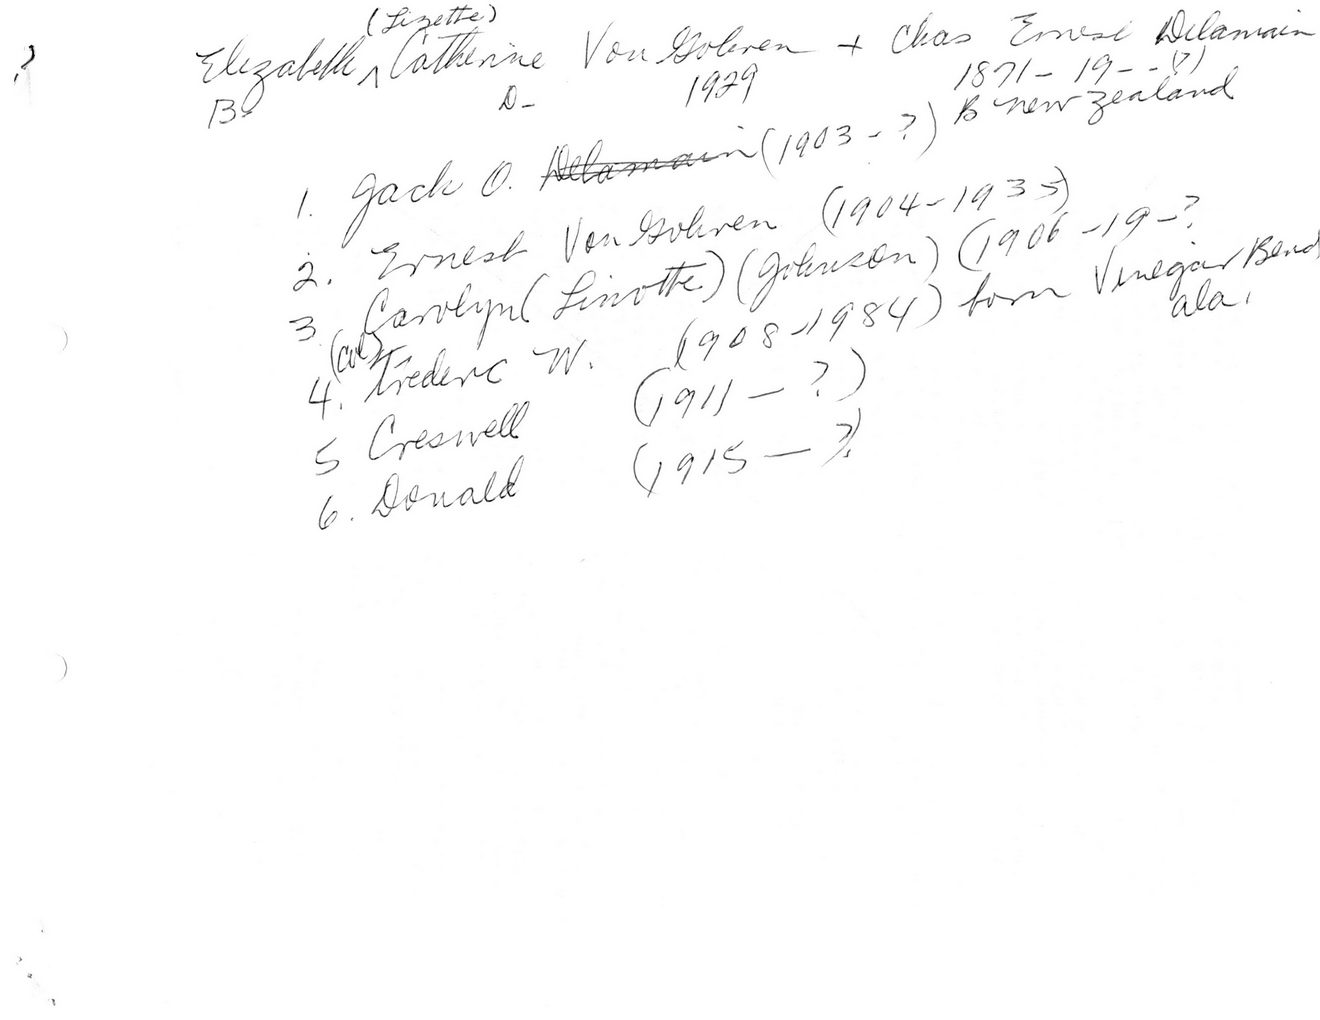 (Lizette)
? Elizabeth ^ Catherine Von Gohren + Chas Ernest Delamain
B D- 1929 1871 - 19-- (?)
B new zealand
1. Jack O. Delamain (1903 - ?)
2. Ernest Von Gohren (1904-1935)
3 Carolyn (Linotte) (Johnson) (1906 - 19-?
(Col)
4. Frederic W. (1908-1984) born Vinegar Bend
ala.
5 Creswell (1911 - ?)
6. Donald (1915 - ?)